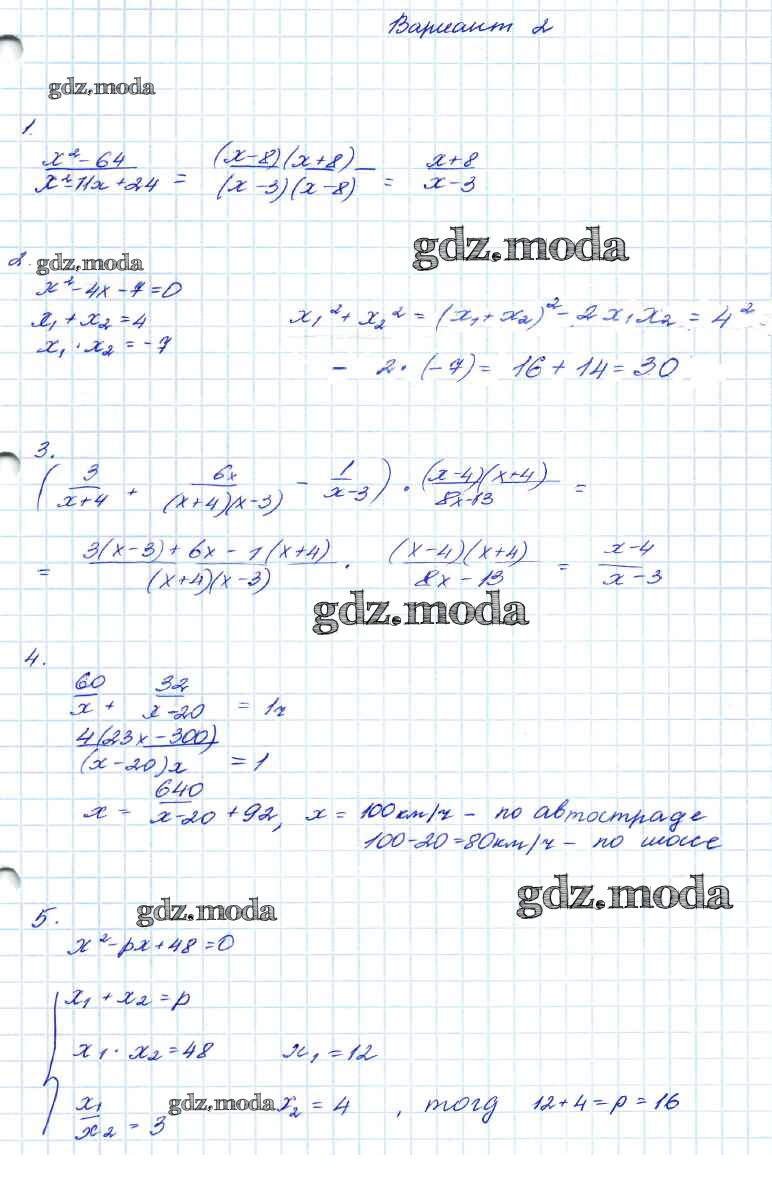 Вариант 2
gdz.moda
1.
x² - 64 / x² - 11x + 24 = (x-8)(x+8) / (x-3)(x-8) = x+8 / x-3
gdz.moda
2. gdz.moda
x² - 4x - 7 = 0
x₁ + x₂ = 4
x₁ · x₂ = -7
x₁² + x₂² = (x₁ + x₂)² - 2x₁x₂ = 4² -
- 2 · (-7) = 16 + 14 = 30
3.
(3 / x+4 + 6x / (x+4)(x-3) - 1 / x-3) · (x-4)(x+4) / 8x-13 =
= 3(x-3) + 6x - 1(x+4) / (x+4)(x-3) · (x-4)(x+4) / 8x-13 = x-4 / x-3
gdz.moda
4.
60 / x + 32 / x-20 = 1ч
4(23x-300) / (x-20)x = 1
x = 640 / x-20 + 92, x = 100км/ч - по автостраде
100-20=80км/ч - по шоссе
gdz.moda
5. gdz.moda
x² - px + 48 = 0
x₁ + x₂ = p
x₁ · x₂ = 48 x₁ = 12
x₁ / x₂ = 3 gdz.moda x₂ = 4, тогд 12+4=p=16